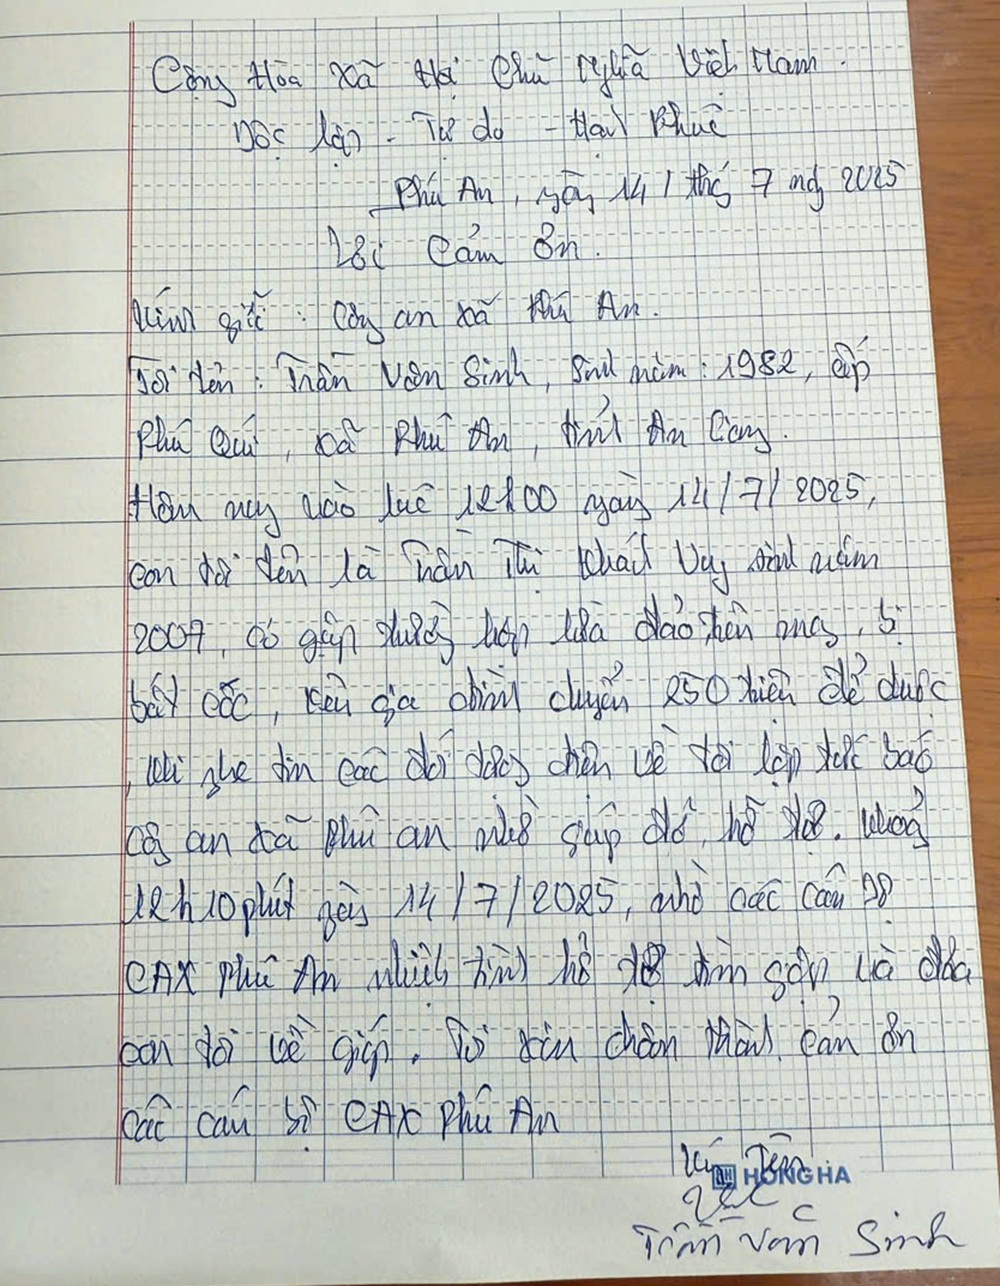 Cộng Hòa Xã Hội Chủ Nghĩa Việt Nam.
Độc lập - Tự do - Hạnh Phúc
Phú An, ngày 14 / tháng 7 năm 2025
Lời Cảm Ơn.
Kính gửi : Công an xã Phú An.
Tôi tên : Trần Văn Sinh, sinh năm : 1982, ấp
Phú Quí, xã Phú An, tỉnh An Giang.
Hôm nay vào lúc 12h00 ngày 14/7/2025,
con tôi tên là Trần Thị Khánh Vy sinh năm
2007, có gặp trường hợp lừa đảo trên mạng, bị
bắt cóc, yêu gia đình chuyển 250 triệu để được
, khi nghe tin các đối tượng trên về tôi lập tức báo
công an xã Phú an nhờ giúp đỡ, hỗ trợ. khoảng
12h10 phút ngày 14/7/2025, nhờ các cán bộ
CAX Phú An nhiệt tình hỗ trợ tìm gặp và đưa
con tôi về giúp. Tôi xin chân thành cảm ơn
các cán bộ CAX Phú An
Ký Tên
HONG HA
Trần Văn Sinh